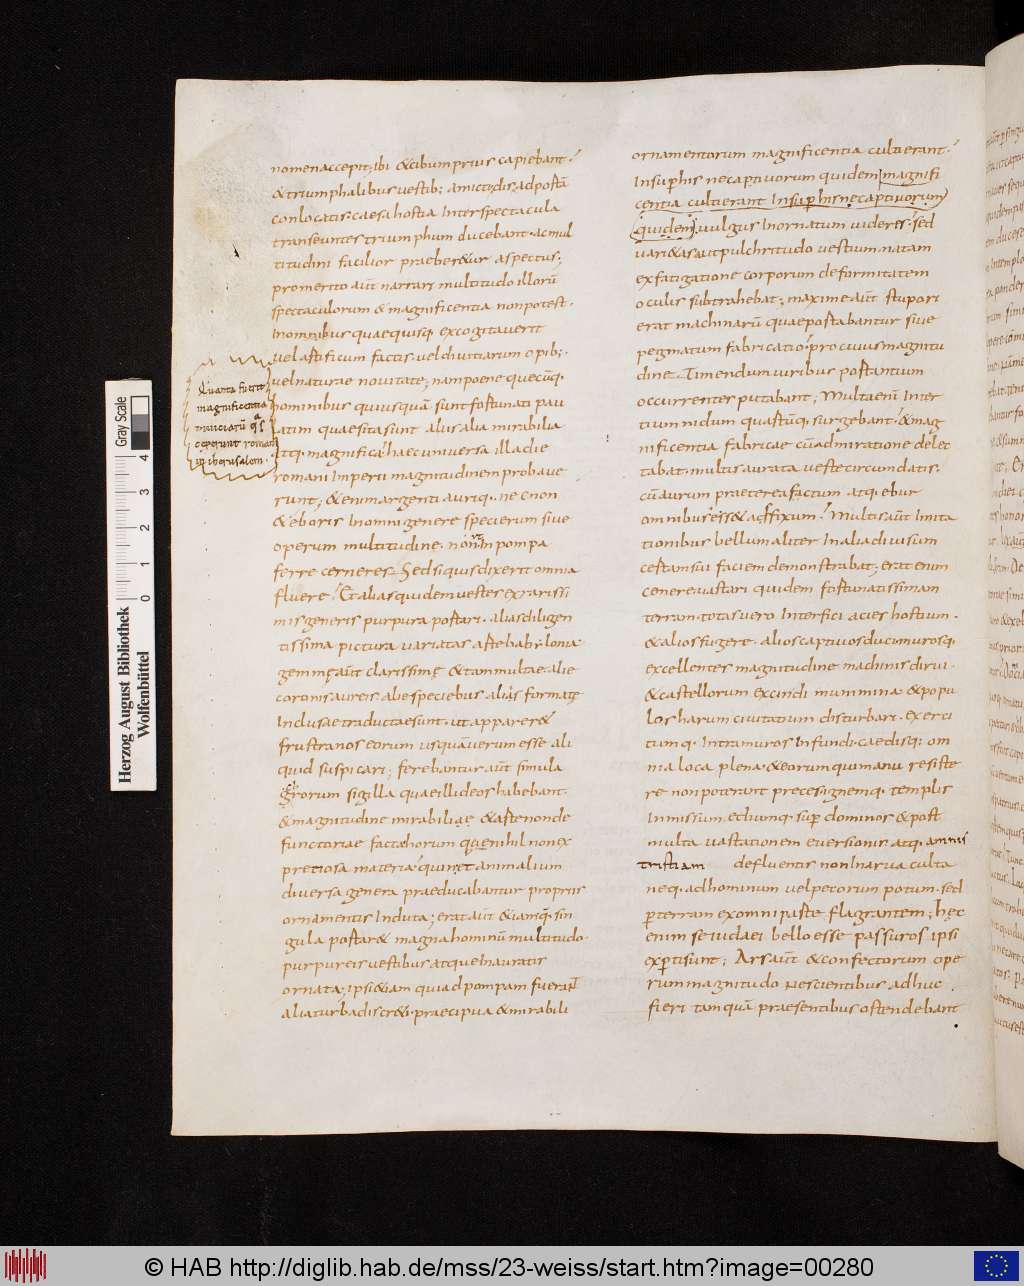 nomen accepit; ibi & cibum prius capiebant.
& triumphalibus vestib; amicti; dis ad postā
conlocatis caesa hostia Inter spectacula
transeuntes triumphum ducebant. ac mul
titudini facilior praeber&ur aspectus;
promerito aūt narrari multitudo illorū
spectaculorum & magnificentia non potest.
Inomnibus quae quisq; excogitaverit
vel artificum factis vel divitiarum opib;.
vel naturae novitate; nam poene quecūq.
hominibus qui usquā sunt fortunati pau
latim quaesita sunt aliis alia mirabilia
atq. magnifica haec universa illa die
romani Imperii magnitudinem probave
runt; & enim argenti auriq. nec non
& eboris Inomni genere specierum sive
operum multitudine. non ut In pompa
ferre cerneres. Sed si quis dixerit omnia
fluere. Et alias quidem vestes ex rarissi
mis generis purpura portari. alias diligen
tissima pictura variatas arte babylonia
gemmę aūt clarissimę & tam multae aliae
coronis aureis. alie speciebus aliis formatę
Inclusae traductae sunt. ut apparer&
frustra nos eorum usquā rerum esse ali
quid suspicari; ferebantur aūt simula
grorum sigilla quae illi deos habebant.
& magnitudine mirabiliae & arte non de
functoriae facta horum que nihil non ex
pretiosa materia. quin et animalium
diversa genera praeducabantur propriis
ornamentis Induta; erat aūt & iamq. sin
gula portar& magna hominū multitudo.
purpureis vestibus atque Inauratis
ornata; ipsi & iam qui ad pompam fuerunt
alia turba discr&i. praecipua & mirabili
Quanta fuerit
magnificentia
ceperunt romani
in iherusalem.
ornamentorum magnificentia culti erant.
Insup his ne captivorum quidem magnifi
centia culti erant Insup his ne captivorum
quidem vulgus Inornatum videres. sed
vari&as aut pulchritudo vestium natam
ex fatigatione corporum deformitatem
oculis subtrahebat; maxime aūt stupori
erat machinarū quae portabantur sive
pegmatum fabricatio. pro cuius magnitu
dine. Timendum viribus portantium
occurrentes putabant; Multa enī Inter
tium nidum quartūq. surgebant. & mag
nificentia fabricae cū admiratione delec
tabat. multis aurata veste circumdatis.
cū aurum praeterea factum atq. ebur
omnibus ess& adfixum. Multis aūt Imita
tionibus bellum aliter In alia divisum
certam sui faciem demonstrabat; erat enim
cernere vastari quidem fortunatissimam
terram. totas vero Interfici acies hostium.
& alios fugere. alios captivos duci murosq.
excellentes magnitudine machinis dirui.
& castellorum excindi munimina & popu
losharum civitatum disturbari. exerci
tumq. Intra muros Infundi. caedisq. om
nia loca plena. & eorum qui manu resiste
re non poterant preces ignemq. templis
Inmissum. et dumq. sup dominos & post
multa vastationem eversionis atq. amnis
tristiam defluentis non In arva culta
neq. ad hominum vel petorum potum. sed
p terram ex omni parte flagrantem; hęc
enim se iudaei bello esse passuros ipsi
exptisunt; Ars aūt & confectorum ope
rum magnitudo nescientibus adhuc
fieri tamquā praesentibus ostendebant
Gray Scale
4
3
2
1
0
Herzog August Bibliothek
Wolfenbüttel
© HAB http://diglib.hab.de/mss/23-weiss/start.htm?image=00280